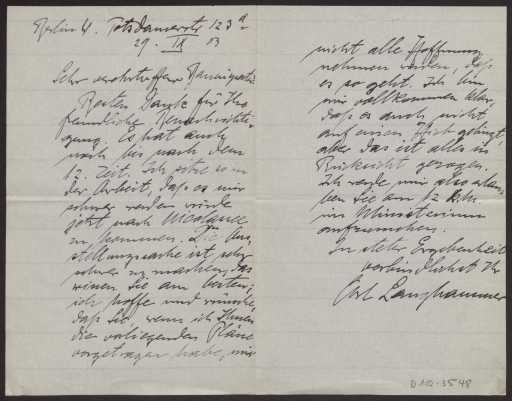 Berlin W. Potsdamerstr 123a
29. IX 03
Sehr verehrtester
Besten Dank für Ihre
freundliche Benachrichti-
gung. Es hat auch
noch bis nach dem
12. Zeit. Ich sitze so in
der Arbeit, daß es mir
schwer werden würde
jetzt nach
zu kommen. Die Aus-
stellungssache ist sehr
schwer zu machen, das
wissen Sie am besten;
ich hoffe und wünsche,
daß Sie, wenn ich Ihnen
die vorliegenden Pläne
vorgetragen habe, mir
nicht alle Hoffnung
nehmen werden, daß
es so geht. Ich bin
mir vollkommen klar,
daß es auch nicht
auf einen gelingt,
aber das ist alles in
Rücksicht gezogen.
Ich werde mir also erlau-
ben Sie am 12
im Ministerium
aufzusuchen.
In steter Ergebenheit
verbindlichst Ihr
Carl Langhammer
D 102-3548